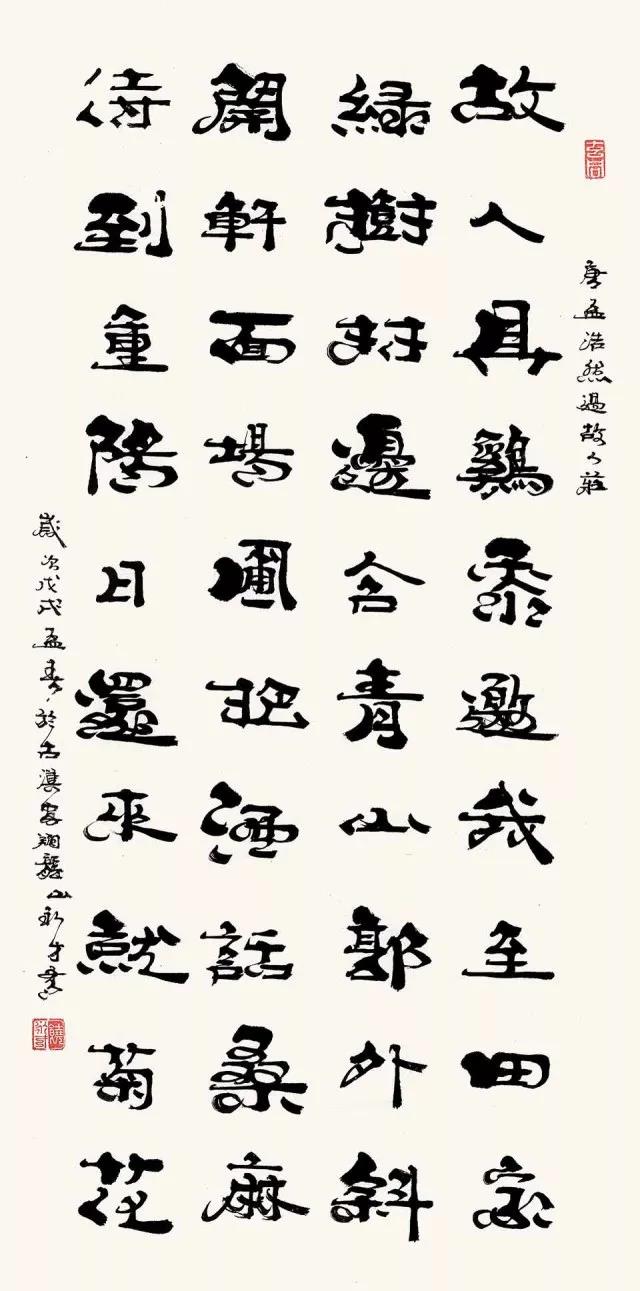 唐孟浩然過故人莊
故人具鷄黍邀我至田家
綠樹村邊合青山郭外斜
開軒面場圃把酒話桑麻
待到重陽日還來就菊花
歲次戊戌孟春於古滇翔龍山永才書